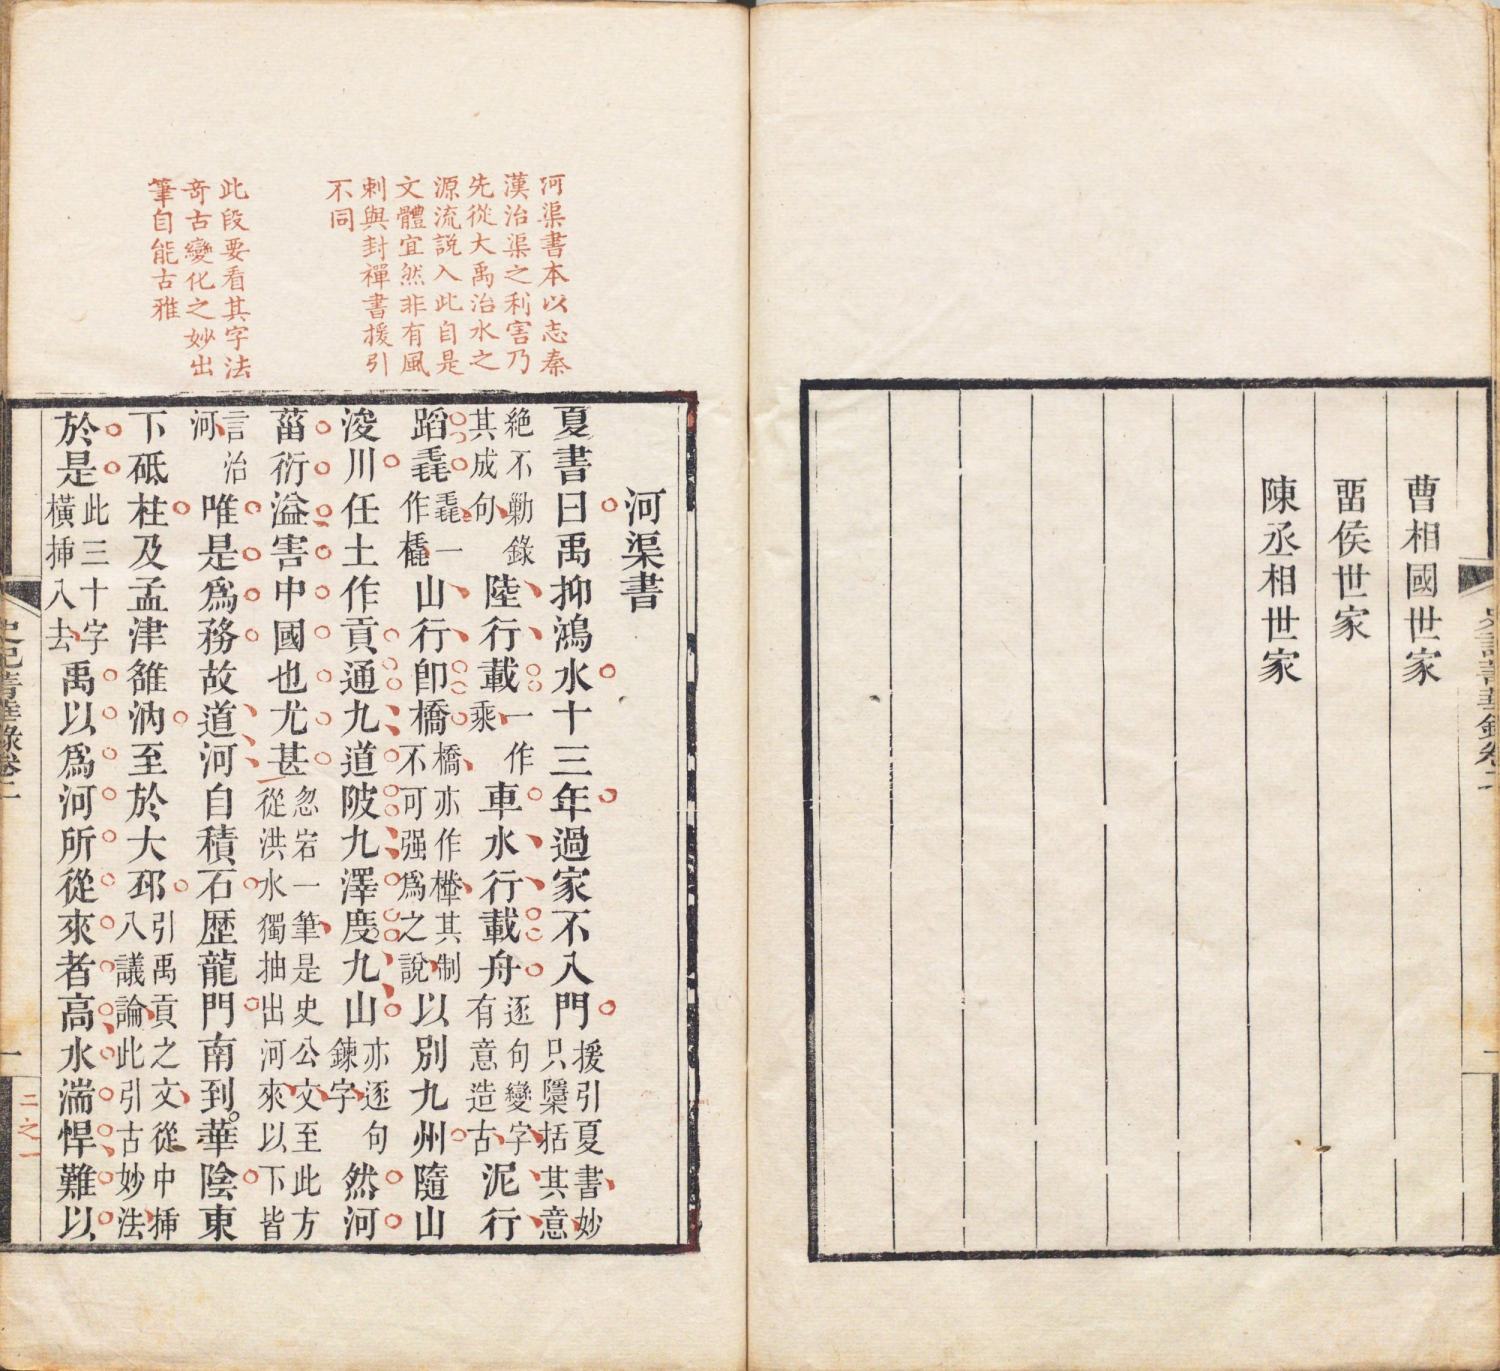 曹相國世家
畱侯世家
陳丞相世家
河渠書本以志秦
漢治渠之利害乃
先從大禹治水之
源流説入此自是
文體宜然非有風
刺與封禪書援引
不同
此段要看其字法
奇古變化之妙出
筆自能古雅
河渠書
夏書曰禹抑鴻水十三年過家不入門援引夏書妙只隱括其意
絶不勦錄其成句陸行載一作乘車水行載舟逐句變字有意造古泥行
蹈毳毳一作橇山行卽橋橋亦作檋其制不可强爲之說以別九州隨山
浚川任土作貢通九道陂九澤度九山亦逐句鍊字然河
菑衍溢害中國也尤甚忽宕一筆是史公文至此方從洪水獨抽出河來以下皆
言治河唯是爲務故道河自積石歷龍門南到華陰東
下砥柱及孟津雒汭至於大邳引禹貢之文從中揷入議論此引古妙法
於是此三十字橫揷入去禹以爲河所從來者高水湍悍難以
史記菁華錄卷二
一
二之一